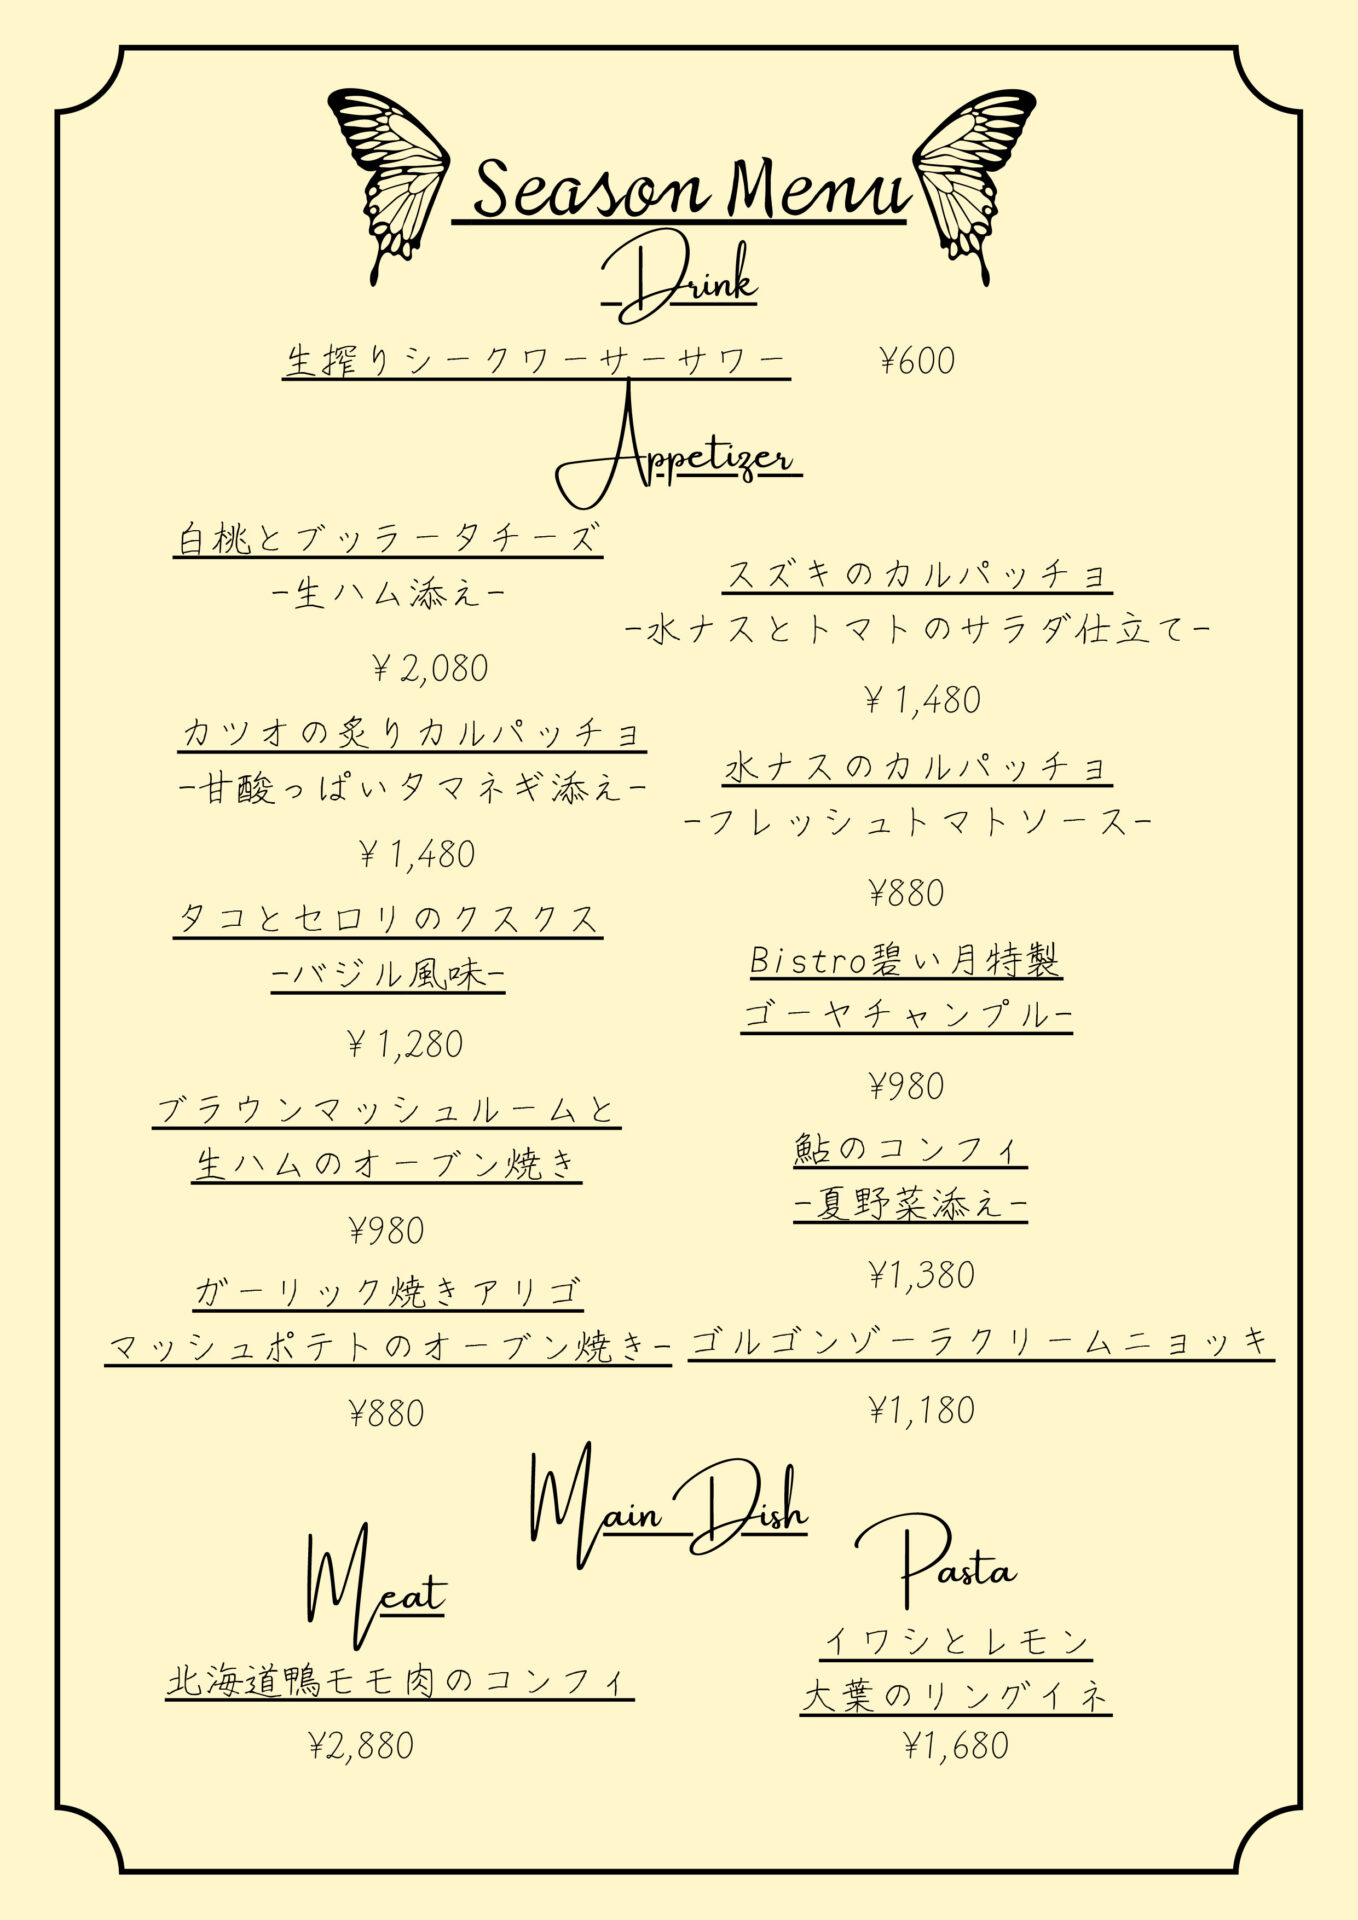 Season Menu
Drink
生搾りシークワーサーサワー ¥600
Appetizer
白桃とブッラータチーズ
-生ハム添え-
¥ 2,080
カツオの炙りカルパッチョ
-甘酸っぱいタマネギ添え-
¥ 1,480
タコとセロリのクスクス
-バジル風味-
¥ 1,280
ブラウンマッシュルームと
生ハムのオーブン焼き
¥980
ガーリック焼きアリゴ
マッシュポテトのオーブン焼き-
¥880
スズキのカルパッチョ
-水ナスとトマトのサラダ仕立て-
¥ 1,480
水ナスのカルパッチョ
-フレッシュトマトソース-
¥880
Bistro碧い月特製
ゴーヤチャンプル-
¥980
鮎のコンフィ
-夏野菜添え-
¥1,380
ゴルゴンゾーラクリームニョッキ
¥1,180
Main Dish
Meat
北海道鴨モモ肉のコンフィ
¥2,880
Pasta
イワシとレモン
大葉のリングイネ
¥1,680